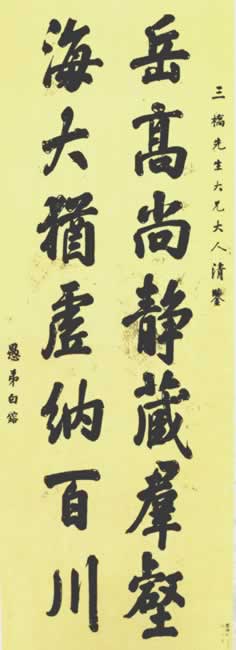 三橋先生六兄大人清鑒
岳髙尚静藏羣壑
海大猶虛納百川
愚弟白鎔